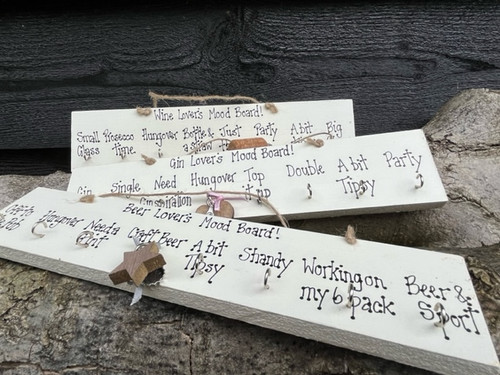 Wine Lover's Mood Board!
Small Prosecco Hungover Bottle & Just Party A bit Big
Glass time a straw
Gin Lover's Mood Board!
Gin Single Need Hungover Top Double A bit Party
Tipsy
Beer Lover's Mood Board!
Hungover Need a Craft Beer A bit Shandy Working on Beer &
Pint Tipsy my 6 pack Sport